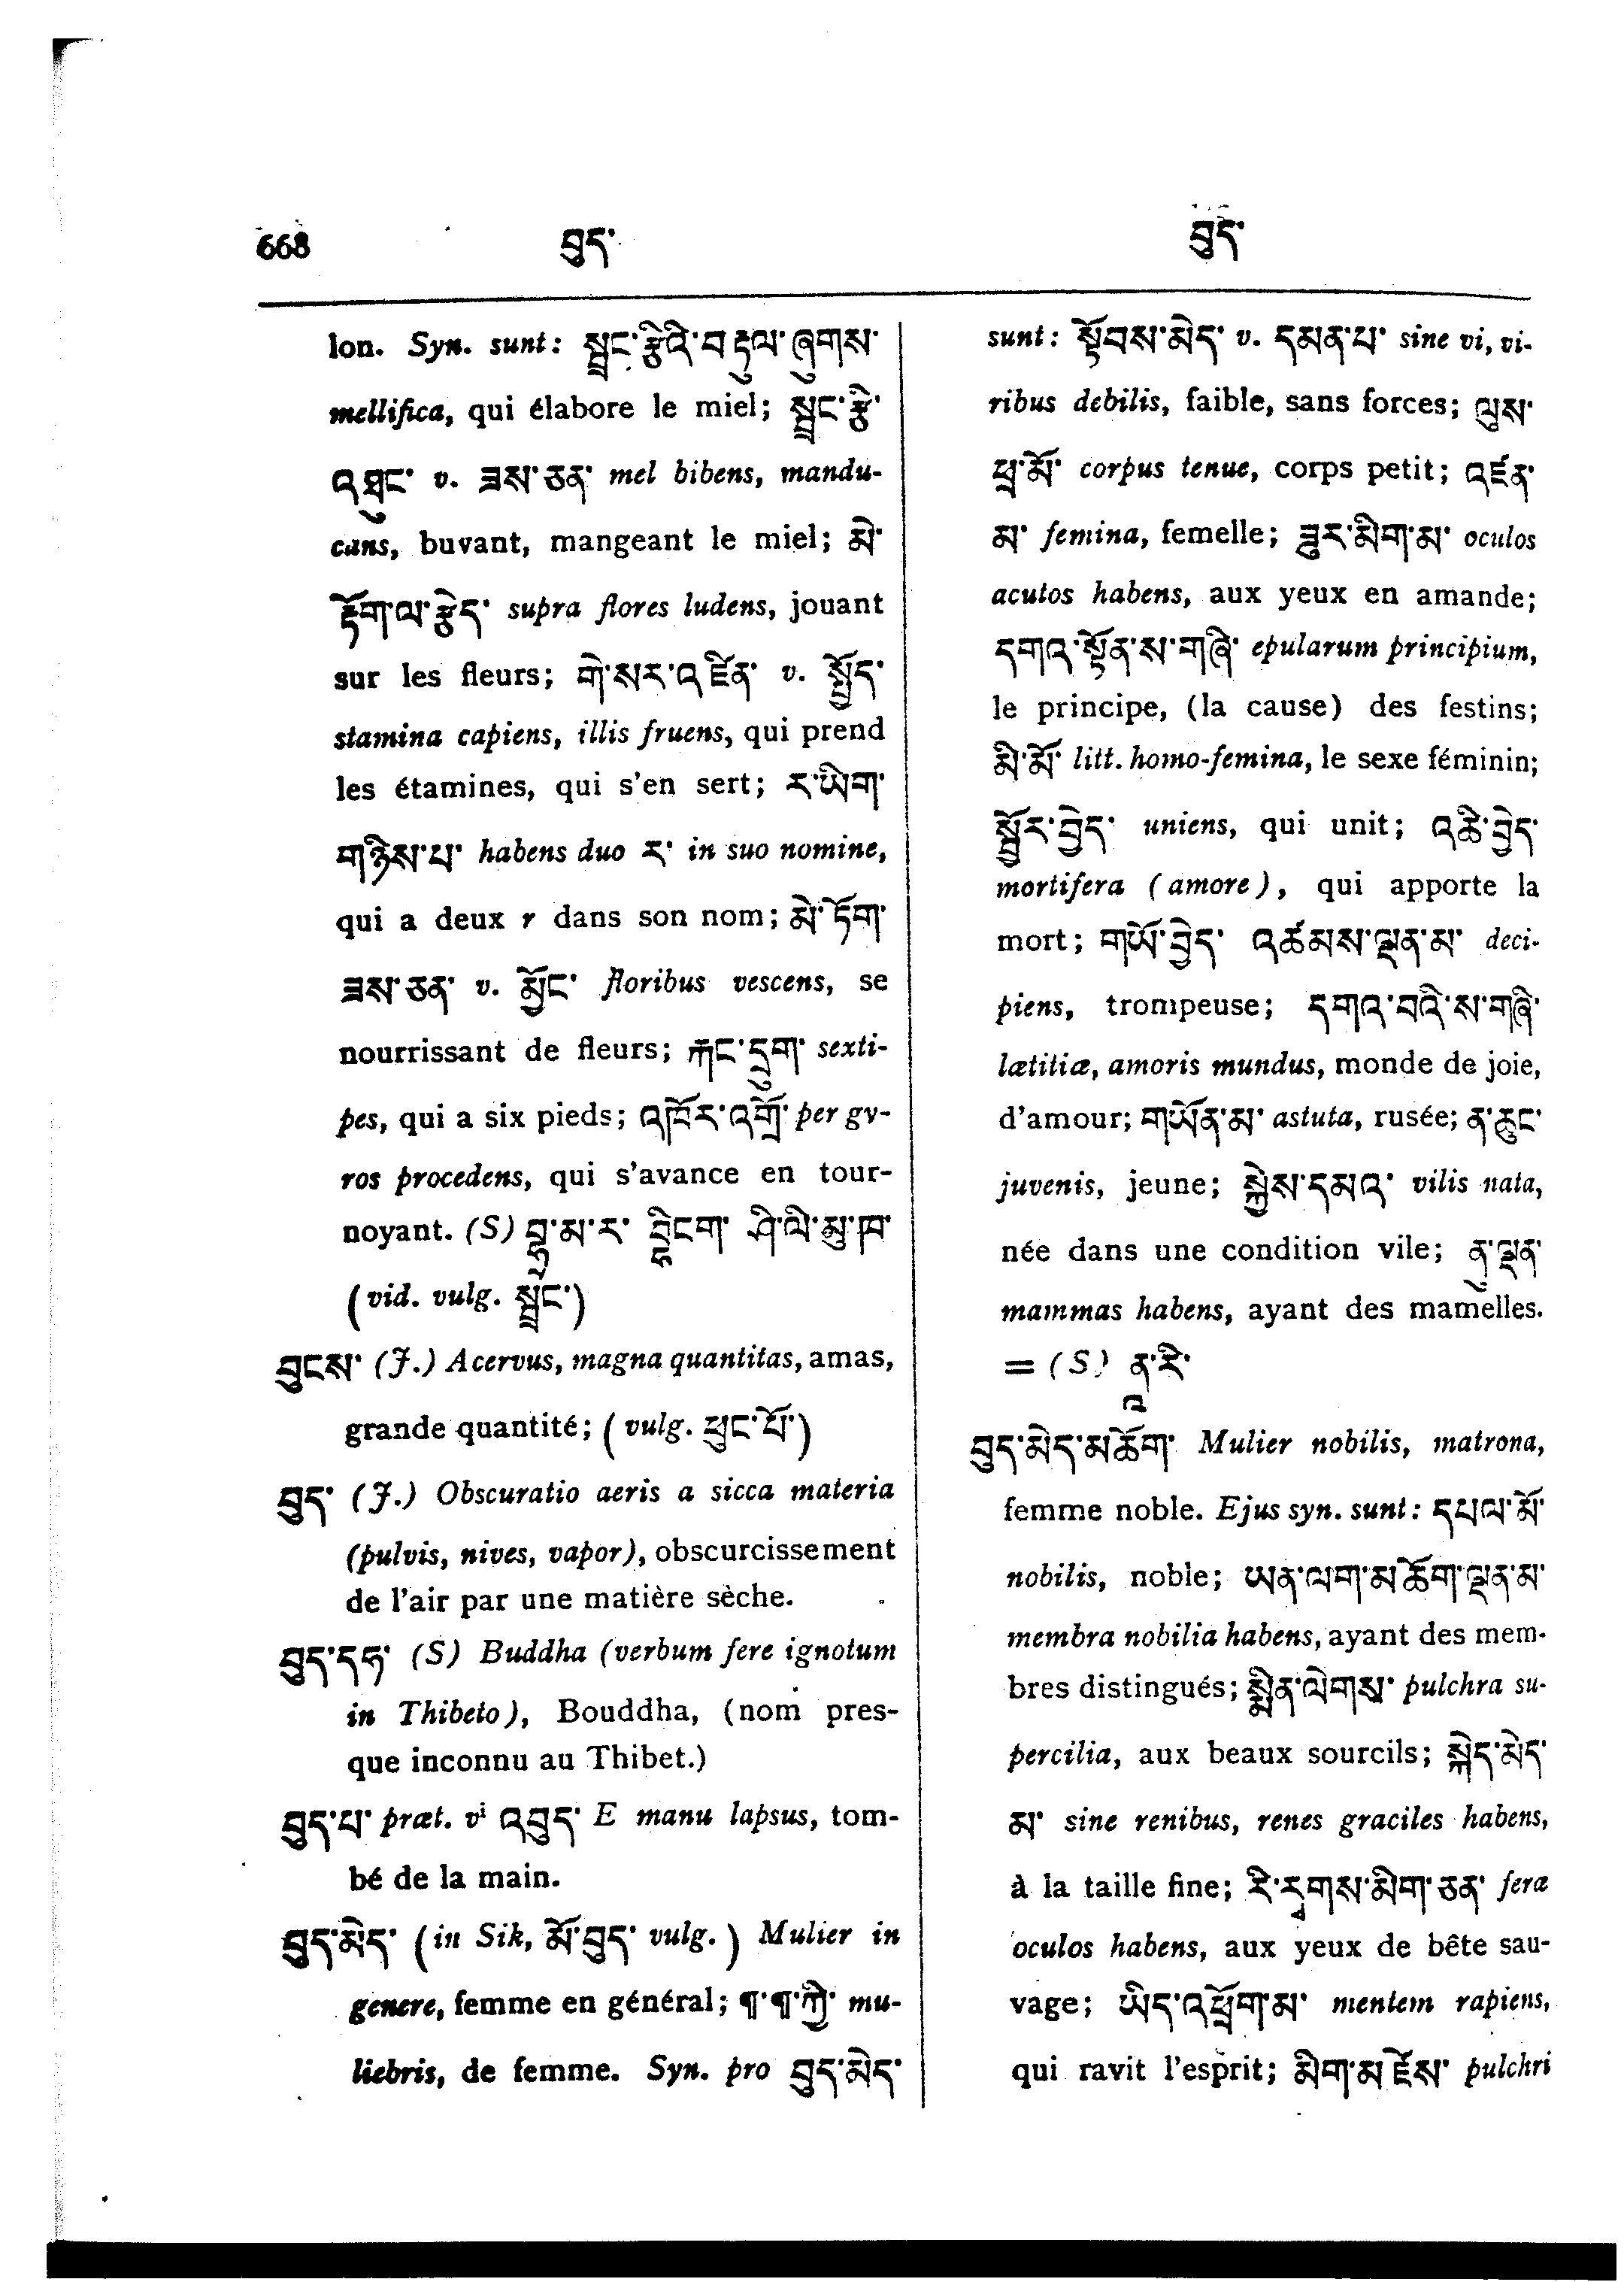 668 བུད་ བུད་
lon. Syn. sunt: སྦྲང་རྩིའི་བརྡུལ་ཞུགས་
mellifica, qui élabore le miel; སྦྲང་རྩི་
འཐུང་ v. ཟས་ཅན་ mel bibens, mandu-
cans, buvant, mangeant le miel; མེ་
རྟོག་ལ་རྩེད་ supra flores ludens, jouant
sur les fleurs; གེ་སར་འཛིན་ v. སྤྱོད་
stamina capiens, illis fruens, qui prend
les étamines, qui s'en sert; ར་ཡིག་
གཉིས་པ་ habens duo ར་ in suo nomine,
qui a deux r dans son nom; མེ་ཏོག་
ཟས་ཅན་ v. མྱོང་ floribus vescens, se
nourrissant de fleurs; རྐང་དྲུག་ sexti-
pes, qui a six pieds; འཁོར་འགྲོ་ per gy-
ros procedens, qui s'avance en tour-
noyant. (S) བྷྲ་མ་ར་ བྷྲིངག་ ཤི་ལི་མུ་ཁ་
(vid. vulg. སྦྲང་)
བུངས་ (J.) Acervus, magna quantitas, amas,
grande quantité; (vulg. ཕུང་པོ་)
བུད་ (J.) Obscuratio aeris a sicca materia
(pulvis, nives, vapor), obscurcissement
de l'air par une matière sèche.
བུད་དཧ་ (S) Buddha (verbum fere ignotum
in Thibeto), Bouddha, (nom pres-
que inconnu au Thibet.)
བུད་པ་ præt. vi འབུད་ E manu lapsus, tom-
bé de la main.
བུད་མེད་ (in Sik, མོ་བུད་ vulg.) Mulier in
genere, femme en général; ¶་¶་ཀྱི་ mu-
liebris, de femme. Syn. pro བུད་མེད་
sunt: སྟོབས་མེད་ v. དམན་པ་ sine vi, vi-
ribus debilis, faible, sans forces; ལུས་
ཕྲ་མོ་ corpus tenue, corps petit; འཛིན་
མ་ femina, femelle; ཟུར་མིག་མ་ oculos
acutos habens, aux yeux en amande;
དགའ་སྟོན་ས་གཞི་ epularum principium,
le principe, (la cause) des festins;
མི་མོ་ litt. homo-femina, le sexe féminin;
སྦྱོར་བྱེད་ uniens, qui unit; འཆི་བྱེད་
mortifera (amore), qui apporte la
mort; གཡོ་བྱེད་ འཚམས་ལྡན་མ་ deci-
piens, trompeuse; དགའ་བའི་ས་གཞི་
lætitiæ, amoris mundus, monde de joie,
d'amour; གཡོན་མ་ astuta, rusée; ན་ཆུང་
juvenis, jeune; སྐྱེས་དམའ་ vilis nata,
née dans une condition vile; ནུ་ལྡན་
mammas habens, ayant des mamelles.
= (S) ནཱ་རི་
བུད་མེད་མཆོག་ Mulier nobilis, matrona,
femme noble. Ejus syn. sunt: དཔལ་མོ་
nobilis, noble; ཡན་ལག་མཆོག་ལྡན་མ་
membra nobilia habens, ayant des mem-
bres distingués; སྨིན་ལེགས་ pulchra su-
percilia, aux beaux sourcils; སྐེད་མེད་
མ་ sine renibus, renes graciles habens,
à la taille fine; རི་དྭགས་མིག་ཅན་ feræ
oculos habens, aux yeux de bête sau-
vage; ཡིད་འཕྲོག་མ་ mentem rapiens,
qui ravit l'esprit; མིག་མཛེས་ pulchri